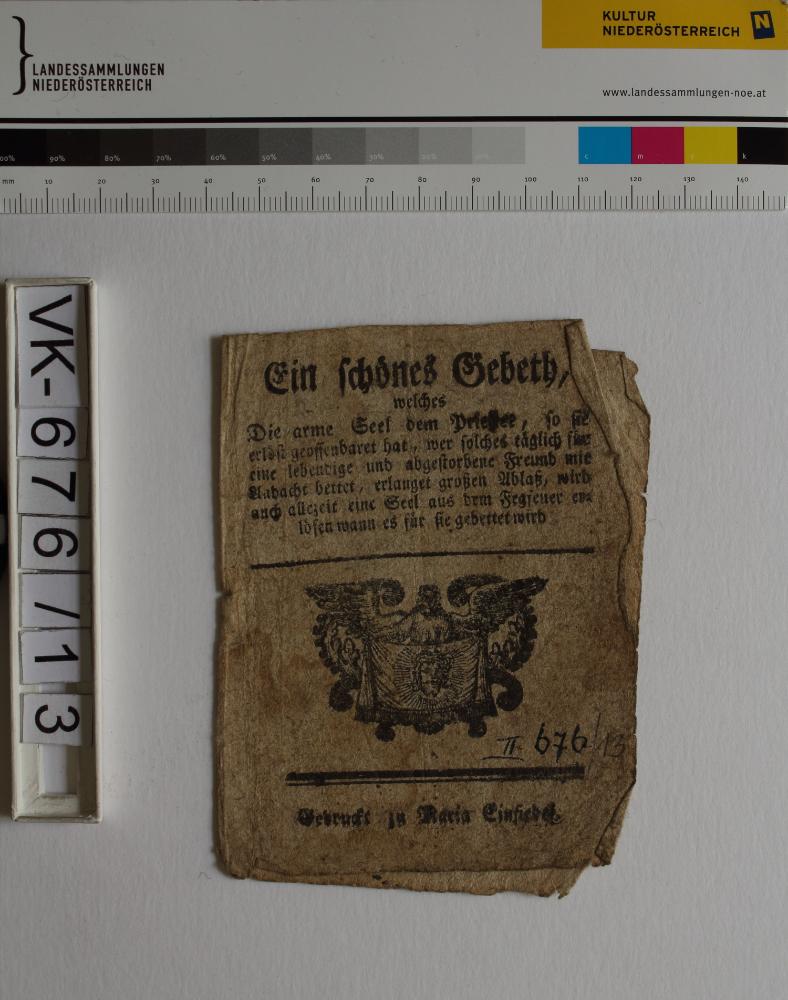 LANDESSAMMLUNGEN
NIEDERÖSTERREICH
KULTUR
NIEDERÖSTERREICH
N
www.landessammlungen-noe.at
00% 90% 80% 70% 60% 50% 40% 30% 20% c m y k
mm 10 20 30 40 50 60 70 80 90 100 110 120 130 140
VK-676/13
Ein schönes Gebeth,
welches
Die arme Seel dem Priester, so sie
erlöst geoffenbaret hat, wer solches täglich für
eine lebendige und abgestorbene Freund mit
Andacht bettet, erlanget großen Ablaß, wird
auch allezeit eine Seel aus dem Fegfeuer er-
lösen wann es für sie gebettet wird
II 676/13
Gedruckt zu Maria Einsiedel.